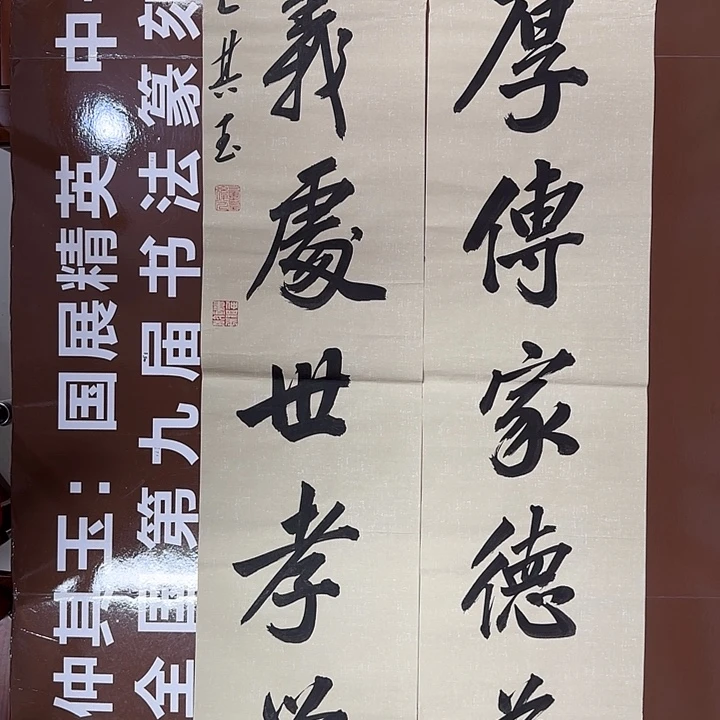 厚傳家德
義處世孝
其玉
仲其玉：国展精英 中
全国第九届书法篆刻